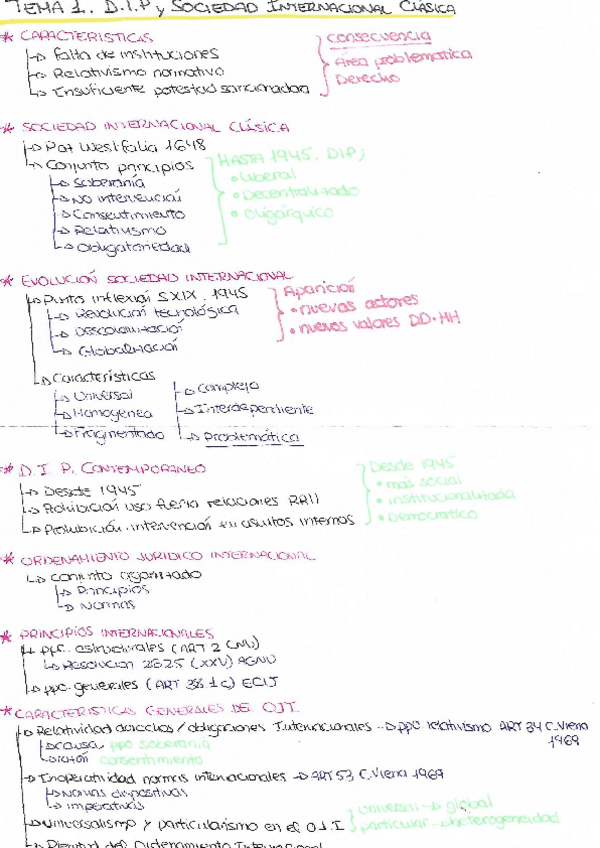 TEMA 1. D.I.P y SOCIEDAD INTERNACIONAL CLÁSICA
* CARACTERISTICAS
→ falta de instituciones
→ Relativismo normativo
→ Insuficiente potestad sancionadora
consecuencia
Área problemática
Derecho
* SOCIEDAD INTERNACIONAL CLÁSICA
→ Paz Westfalia 1648
→ Conjunto principios
→ Soberanía
→ NO intervención
→ Consentimiento
→ Relativismo
→ Obligatoriedad
HASTA 1945. DIP;
• Liberal
• Decentralizado
• Oligárquico
* EVOLUCIÓN SOCIEDAD INTERNACIONAL
→ Punto inflexión S.XIX, 1945
→ Revolución tecnológica
→ Descolonización
→ Globalización
Aparición
• nuevos actores
• nuevos valores DD.HH
→ Características
→ Universal
→ Homogenea
→ Fragmentado
→ Complejo
→ Interdependiente
→ Problemática
* D.I.P. CONTEMPORANEO
→ Desde 1945
→ Prohibición uso fuerza relaciones RRII
→ Prohibición intervención en asuntos internos
Desde 1945
• más social
• institucionalizada
• Democratico
* ORDENAMIENTO JURIDICO INTERNACIONAL
→ Conjunto organizado
→ Principios
→ Normas
* PRINCIPIOS INTERNACIONALES
→ ppc. estructurales (ART 2 CNU)
→ Resolución 2625 (XXV) AGNU
→ ppc. generales (ART 38.1c) ECIJ
* CARACTERISTICAS GENERALES DEL OJI.
→ Relatividad derechos/obligaciones Internacionales → ppo. relativismo ART 34 C.Viena
1969
→ causa ppo soberanía
→ consentimiento
→ Inoperatividad normas internacionales → ART 53 C.Viena 1969
→ Normas dispositivas
→ imperativas
→ Universalismo y particularismo en el O.J.I
universal → global
particular → heterogeneidad
→ Plenitud del Ordenamiento Internacional